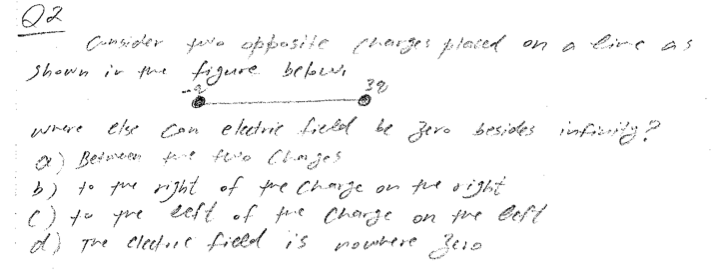 Q2
Consider two opposite charges placed on a line as
shown in the figure below.
-q 3q
where else can electric field be zero besides infinity?
a) Between the two charges
b) to the right of the charge on the right
c) to the left of the charge on the left
d) The electric field is nowhere zero